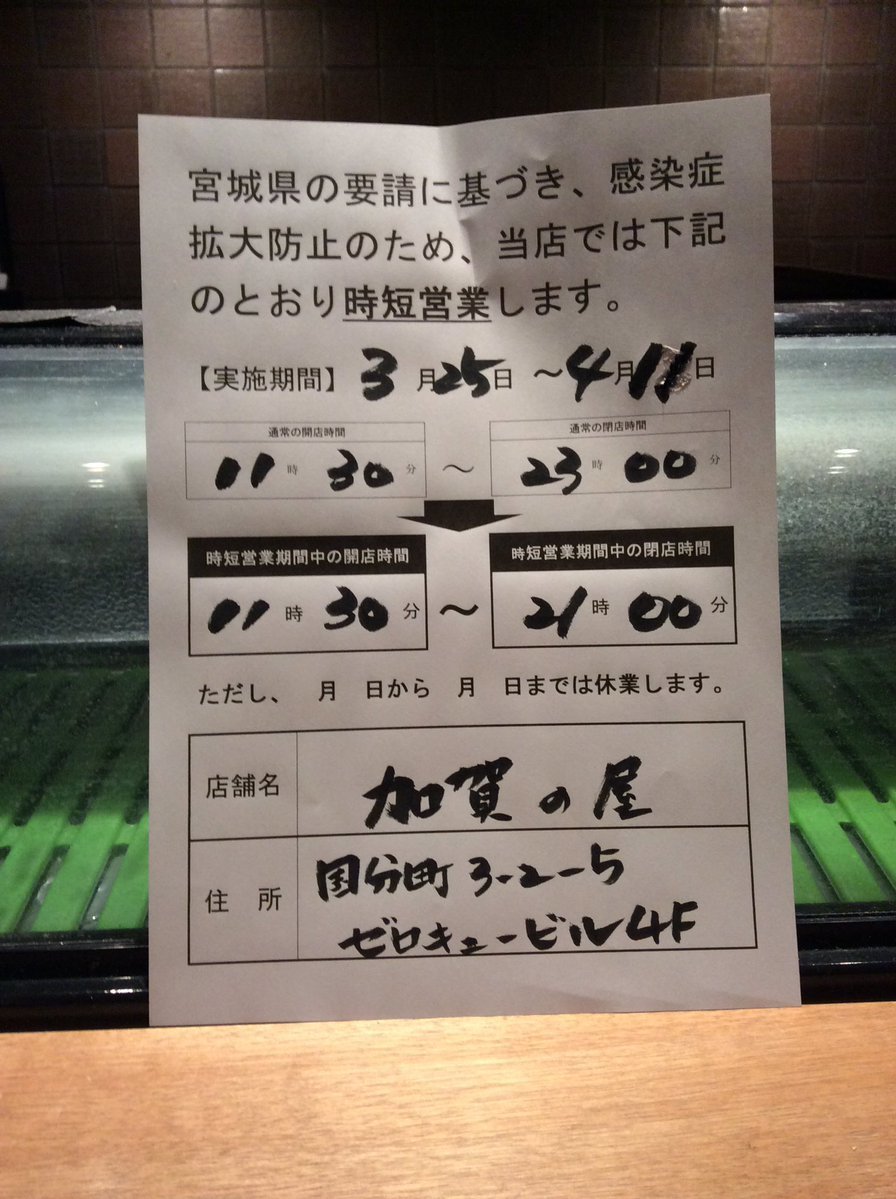 宮城県の要請に基づき、感染症
拡大防止のため、当店では下記
のとおり時短営業します。
【実施期間】 3月25日 ~4月11日
通常の開店時間 通常の閉店時間
11時30分 ~ 23時00分
時短営業期間中の開店時間 時短営業期間中の閉店時間
11時30分 ~ 21時00分
ただし、 月 日から 月 日までは休業します。
店舗名 加賀の屋
住 所 国分町3-2-5
ゼロキュービル4F